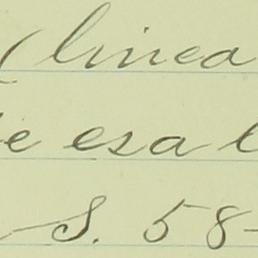 (linea
e esa l
S. 58-